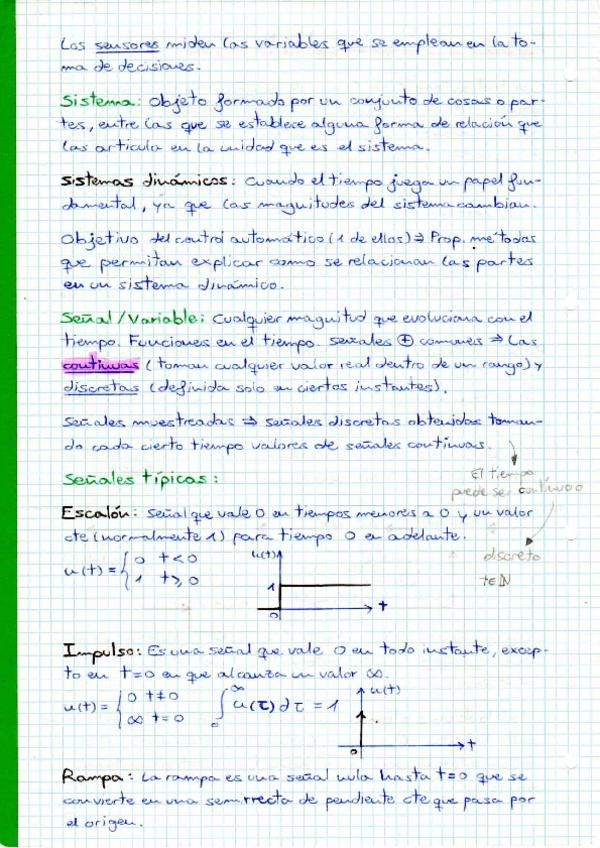 Los sensores miden las variables que se emplean en la to-
ma de decisiones.
Sistema: Objeto formado por un conjunto de cosas o par-
tes, entre las que se establece alguna forma de relación que
las articula en la unidad que es el sistema.
Sistemas dinámicos: Cuando el tiempo juega un papel fun-
damental, ya que las magnitudes del sistema cambian.
Objetivo del control automático (1 de ellos) ⇒ Prop. métodos
que permitan explicar como se relacionan las partes
en un sistema dinámico.
Señal/Variable: Cualquier magnitud que evoluciona con el
tiempo. Funciones en el tiempo. Señales ⊕ comunes ⇒ Las
continuas (toman cualquier valor real dentro de un rango) y
discretas (definida solo en ciertos instantes).
Señales muestreadas ⇒ señales discretas obtenidas toman-
do cada cierto tiempo valores de señales continuas.
El tiempo
puede ser continuo o
discreto
t∈ℕ
Señales típicas:
Escalón: Señal que vale 0 en tiempos menores a 0 y un valor
cte (normalmente 1) para tiempo 0 en adelante.
u(t) = { 0 t<0
1 t≥0
u(t)
1
0
t
Impulso: Es una señal que vale 0 en todo instante, excep-
to en t=0 en que alcanza un valor ∞.
u(t) = { 0 t≠0
∞ t=0
∫₀^∞ u(τ)dτ = 1
u(t)
0
t
Rampa: La rampa es una señal nula hasta t=0 que se
convierte en una semirrecta de pendiente cte que pasa por
el origen.